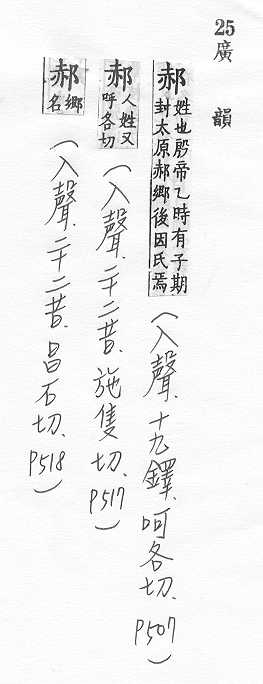 25
廣韻
郝 姓也殷帝乙時有子期
封太原郝鄉後因氏焉
(入聲.十九鐸.呵各切.P507)
郝 人姓又
呼各切
(入聲.二十二昔.施隻切.P517)
郝 鄉
名
(入聲.二十二昔.昌石切.P518)